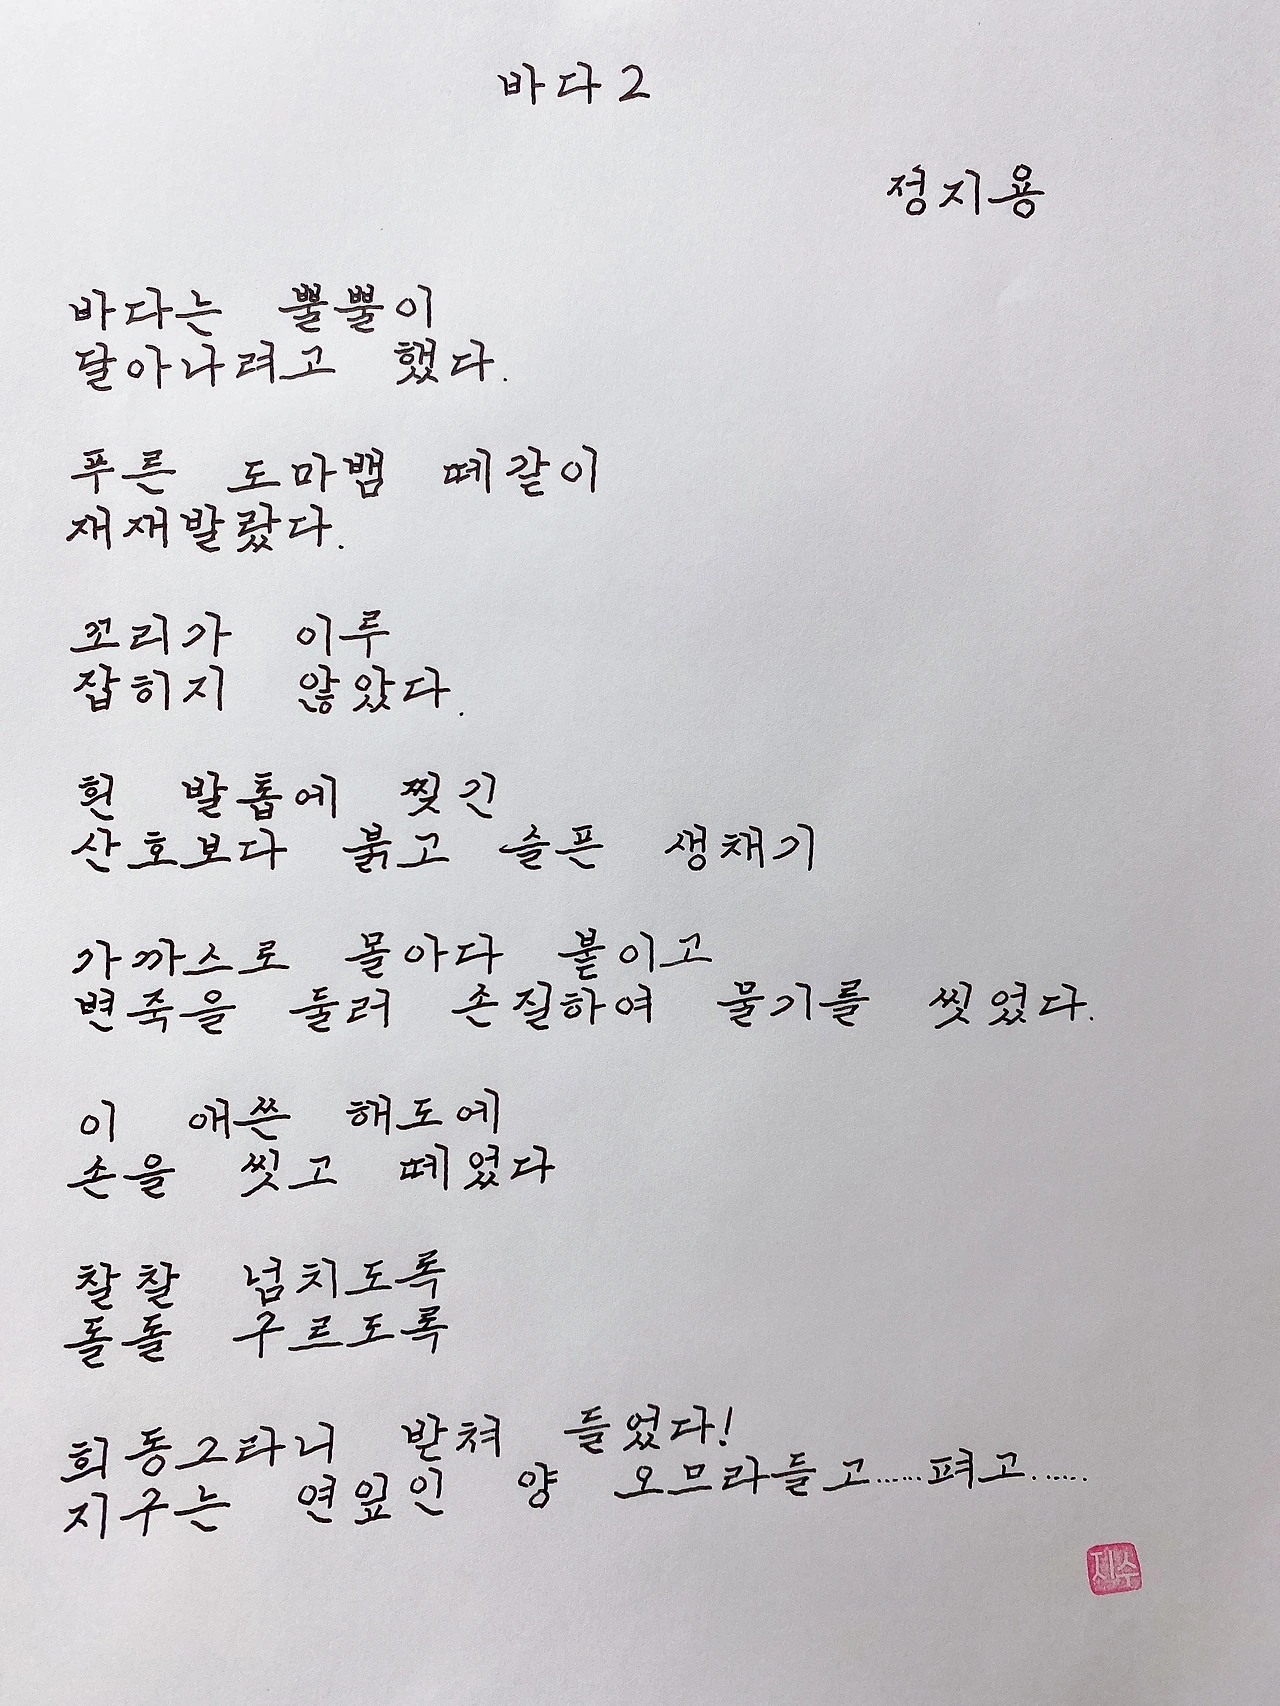 바다2
정지용
바다는 뿔뿔이
달아나려고 했다.
푸른 도마뱀 떼같이
재재발랐다.
꼬리가 이루
잡히지 않았다.
흰 발톱에 찢긴
산호보다 붉고 슬픈 생채기
가까스로 몰아다 붙이고
변죽을 둘러 손질하여 물기를 씻었다.
이 애쓴 해도에
손을 씻고 떼었다
찰찰 넘치도록
돌돌 구르도록
희동그라니 받쳐 들었다!
지구는 연잎인 양 오므라들고......펴고......
지수